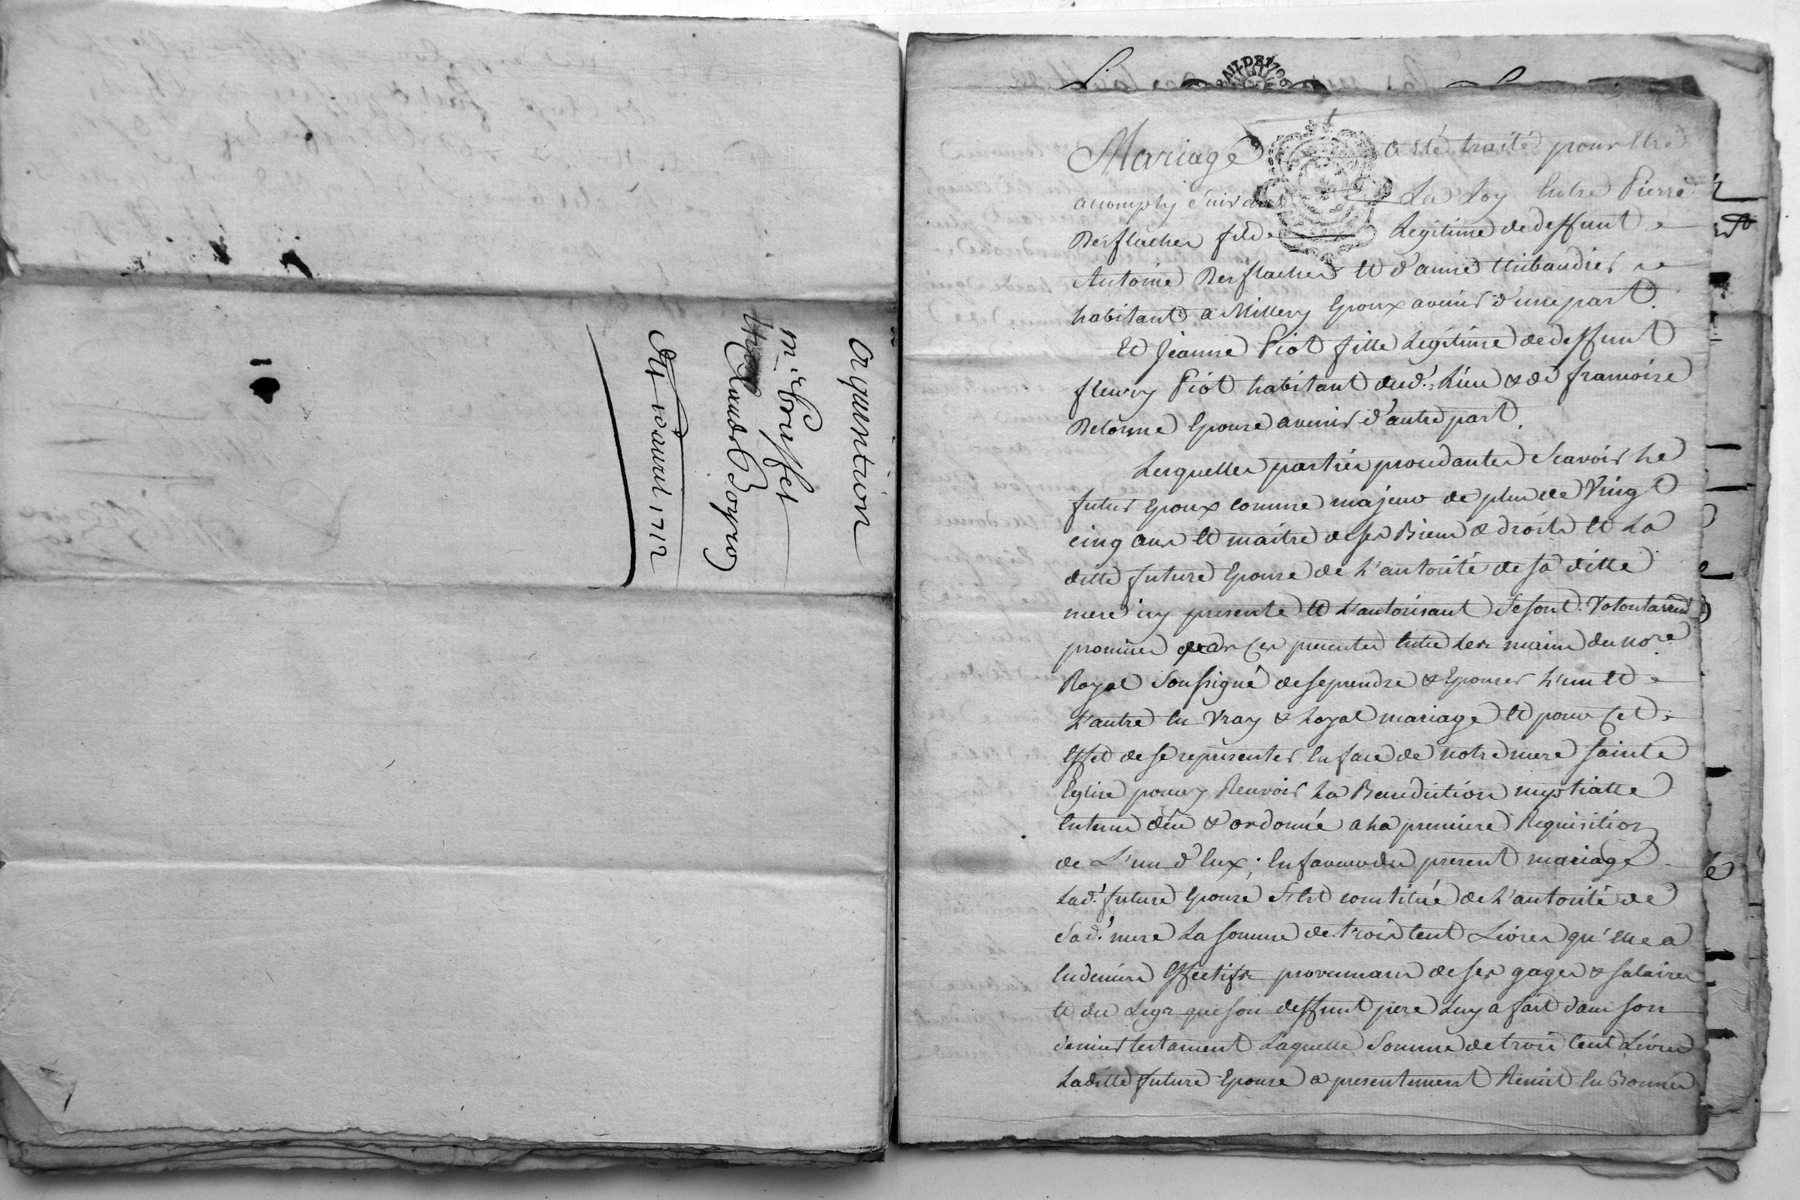 acquisition
m.re Bouffet
Claude Boyron
Du 10 avril 1712
Mariage a été traité pour Etre
accomply suivant La Loy Entre Pierre
Desflaches fils Legitime de deffunt
Antoine Desflaches et d'anne thibaudier
habitant a Millery Epoux avenir d'une part.
Et Jeanne Piot fille Legitime de deffunt
fleury Piot habitant dud.t Lieu & de francoise
Delorme Epouse avenir d'autre part.
Lesquelles parties procedantes Scavoir Le
futur Epoux comme majeur de plus de Vingt
cinq ans et maitre de ses Biens & droits et La
ditte future Epouse de L'autorité de sa ditte
mere icy presente et L'autorisant se sont Volontairem.t
promises par Ces presentes Entre Les mains du no.re
Royal Soussigné de se prendre & Epouser L'un et
L'autre En Vray & Loyal mariage et pour Cet
Effet de se representer En face de notre mere Sainte
Eglise pour y Recevoir La Benediction nuptialle
de L'un d'Eux; En faveur du present mariage
Lad.e future Epouse s'Est constitué de L'autorité de
Sad.e mere La Somme de trois Cent Livres qu'Elle a
En deniers Effectifs provenans de ses gages & salaires
et du Legs que son deffunt pere Luy a fait dans son
dernier testament Laquelle Somme de trois Cent Livres
Laditte future Epouse a presentement Remit En Bonnes